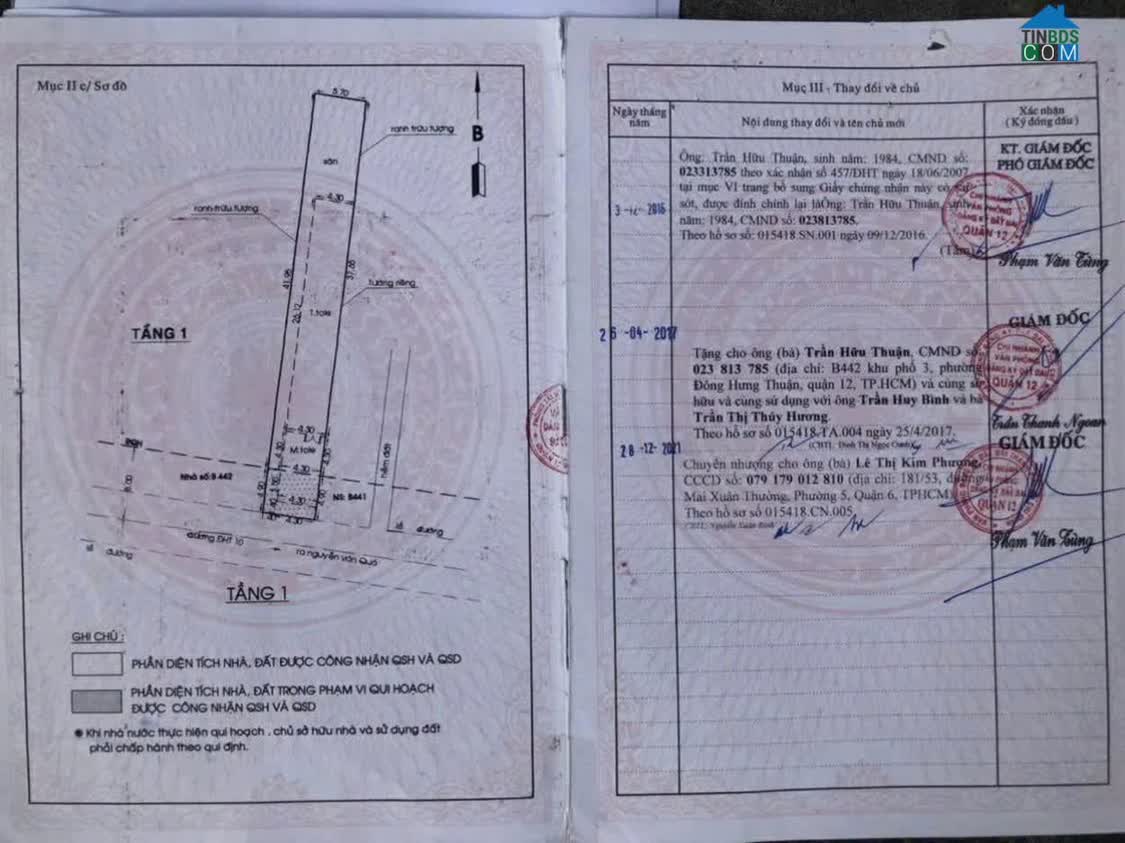 TINBDS
COM
Mục II c/ Sơ đồ
5.70
ranh trừu tượng
B
sân
4.30
ranh trừu tượng
41.95
37.88
26.12
tường riêng
T.tole
TẦNG 1
4.30
M.tole
4.30
hẻm đất
Nhà số: B 442
NS: B441
4.90
4.30
6.00
4.30
lề đường
đường ĐHT 10
ra nguyễn văn Quá
lề đường
TẦNG 1
GHI CHÚ :
PHẦN DIỆN TÍCH NHÀ, ĐẤT ĐƯỢC CÔNG NHẬN QSH VÀ QSD
PHẦN DIỆN TÍCH NHÀ, ĐẤT TRONG PHẠM VI QUI HOẠCH
ĐƯỢC CÔNG NHẬN QSH VÀ QSD
Khi nhà nước thực hiện qui hoạch , chủ sở hữu nhà và sử dụng đất
phải chấp hành theo qui định.
Mục III - Thay đổi về chủ
Ngày tháng
năm
Nội dung thay đổi và tên chủ mới
Xác nhận
( Ký đóng dấu )
KT. GIÁM ĐỐC
PHÓ GIÁM ĐỐC
Ông: Trần Hữu Thuận, sinh năm: 1984, CMND số:
023313785 theo xác nhận số 457/ĐHT ngày 18/06/2007
tại mục VI trang bổ sung Giấy chứng nhận này có sai
sót, được đính chính lại là Ông: Trần Hữu Thuận, sinh
năm: 1984, CMND số: 023813785.
Theo hồ sơ số: 015418.SN.001 ngày 09/12/2016.
(Tâm)
CHI NHÁNH
VĂN PHÒNG
ĐĂNG KÝ ĐẤT ĐAI
QUẬN 12
Phạm Văn Tùng
26 -04- 2017
GIÁM ĐỐC
Tặng cho ông (bà) Trần Hữu Thuận, CMND số
023 813 785 (địa chỉ: B442 khu phố 3, phường
Đông Hưng Thuận, quận 12, TP.HCM) và cùng sở
hữu và cùng sử dụng với ông Trần Huy Bình và bà
Trần Thị Thúy Hương.
Theo hồ sơ số 015418.TA.004 ngày 25/4/2017.
CHI NHÁNH
VĂN PHÒNG
ĐĂNG KÝ ĐẤT ĐAI
QUẬN 12
Trần Thanh Ngoan
28 -12- 2021
GIÁM ĐỐC
Chuyển nhượng cho ông (bà) Lê Thị Kim Phượng,
CCCD số: 079 179 012 810 (địa chỉ: 181/53, đường
Mai Xuân Thưởng, Phường 5, Quận 6, TPHCM)
Theo hồ sơ số 015418.CN.005.
QUẬN 12
Phạm Văn Tùng